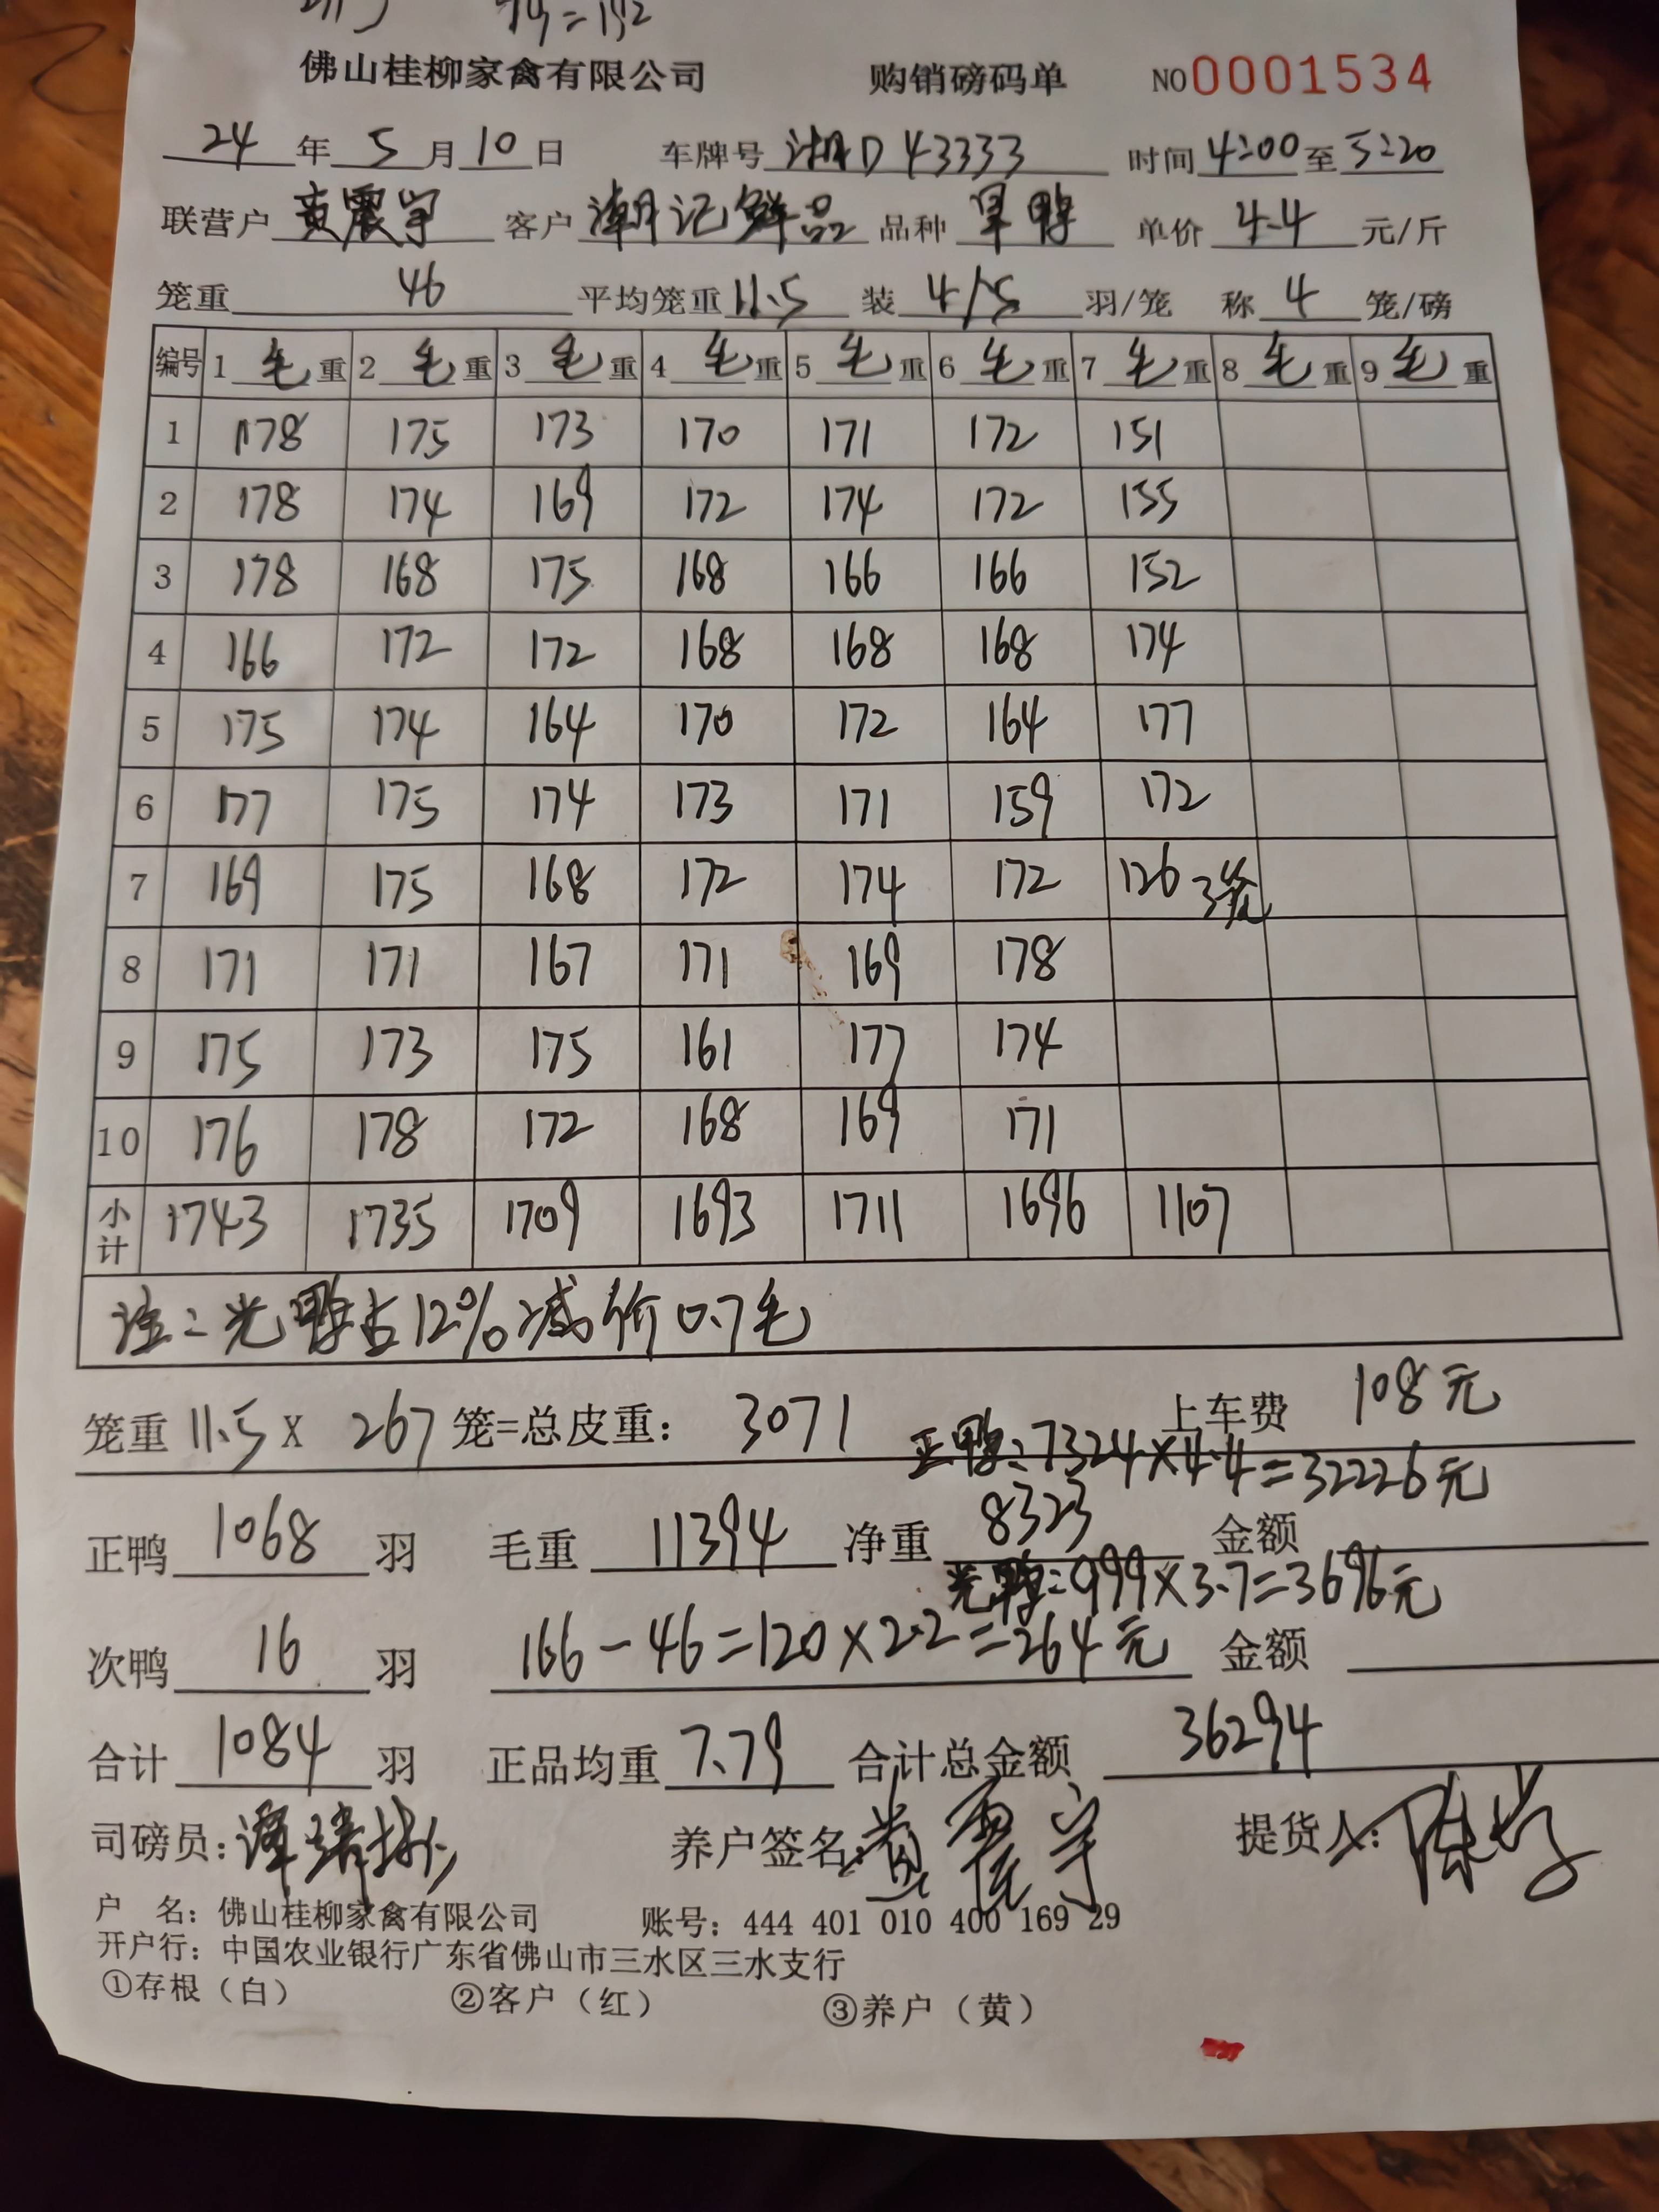 佛山桂柳家禽有限公司 购销磅码单 NO 0001534
24 年 5 月 10 日 车牌号 湘D 43333 时间 4:00 至 5:20
联营户 黄震宇 客户 潮记鲜品 品种 旱鸭 单价 4.4 元/斤
笼重 46 平均笼重 11.5 装 4/5 羽/笼 称 4 笼/磅
编号 1 毛 重 2 毛 重 3 毛 重 4 毛 重 5 毛 重 6 毛 重 7 毛 重 8 毛 重 9 毛 重
1 178 175 173 170 171 172 151
2 178 174 169 172 174 172 155
3 178 168 175 168 166 166 152
4 166 172 172 168 168 168 174
5 175 174 164 170 172 164 177
6 177 175 174 173 171 159 172
7 169 175 168 172 174 172 126 3笼
8 171 171 167 171 169 178
9 175 173 175 161 177 174
10 176 178 172 168 169 171
小计 1743 1735 1709 1693 1711 1696 1107
注:光鸭占12%减价0.7毛
笼重 11.5 X 267 笼=总皮重: 3071 上车费 108元
正鸭:7324×4.4=32226元
正鸭 1068 羽 毛重 11394 净重 8323 金额
光鸭:999×3.7=3696元
次鸭 16 羽 166-46=120×2.2=264元 金额
合计 1084 羽 正品均重 7.79 合计总金额 36294
司磅员: 养户签名: 黄震宇 提货人:
户 名: 佛山桂柳家禽有限公司 账号: 444 401 010 400 169 29
开户行: 中国农业银行广东省佛山市三水区三水支行
①存根(白) ②客户(红) ③养户(黄)